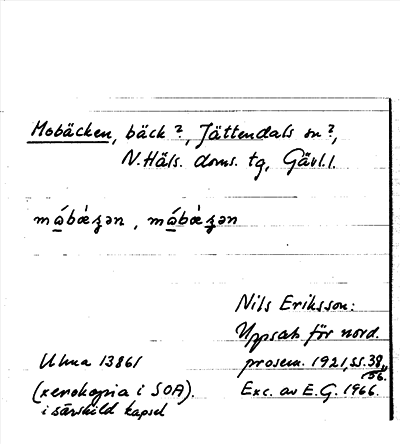 Mobäcken, bäck?, Jättendals sn?,
N.Häls. doms. tg, Gävl.l.
Nils Eriksson:
Uppsats för nord.
prosem. 1921, ss. 38,
56.
Exc. av E.G. 1966.
Ulma 13861
(xerokopia i SOA).
i särskild kapsel